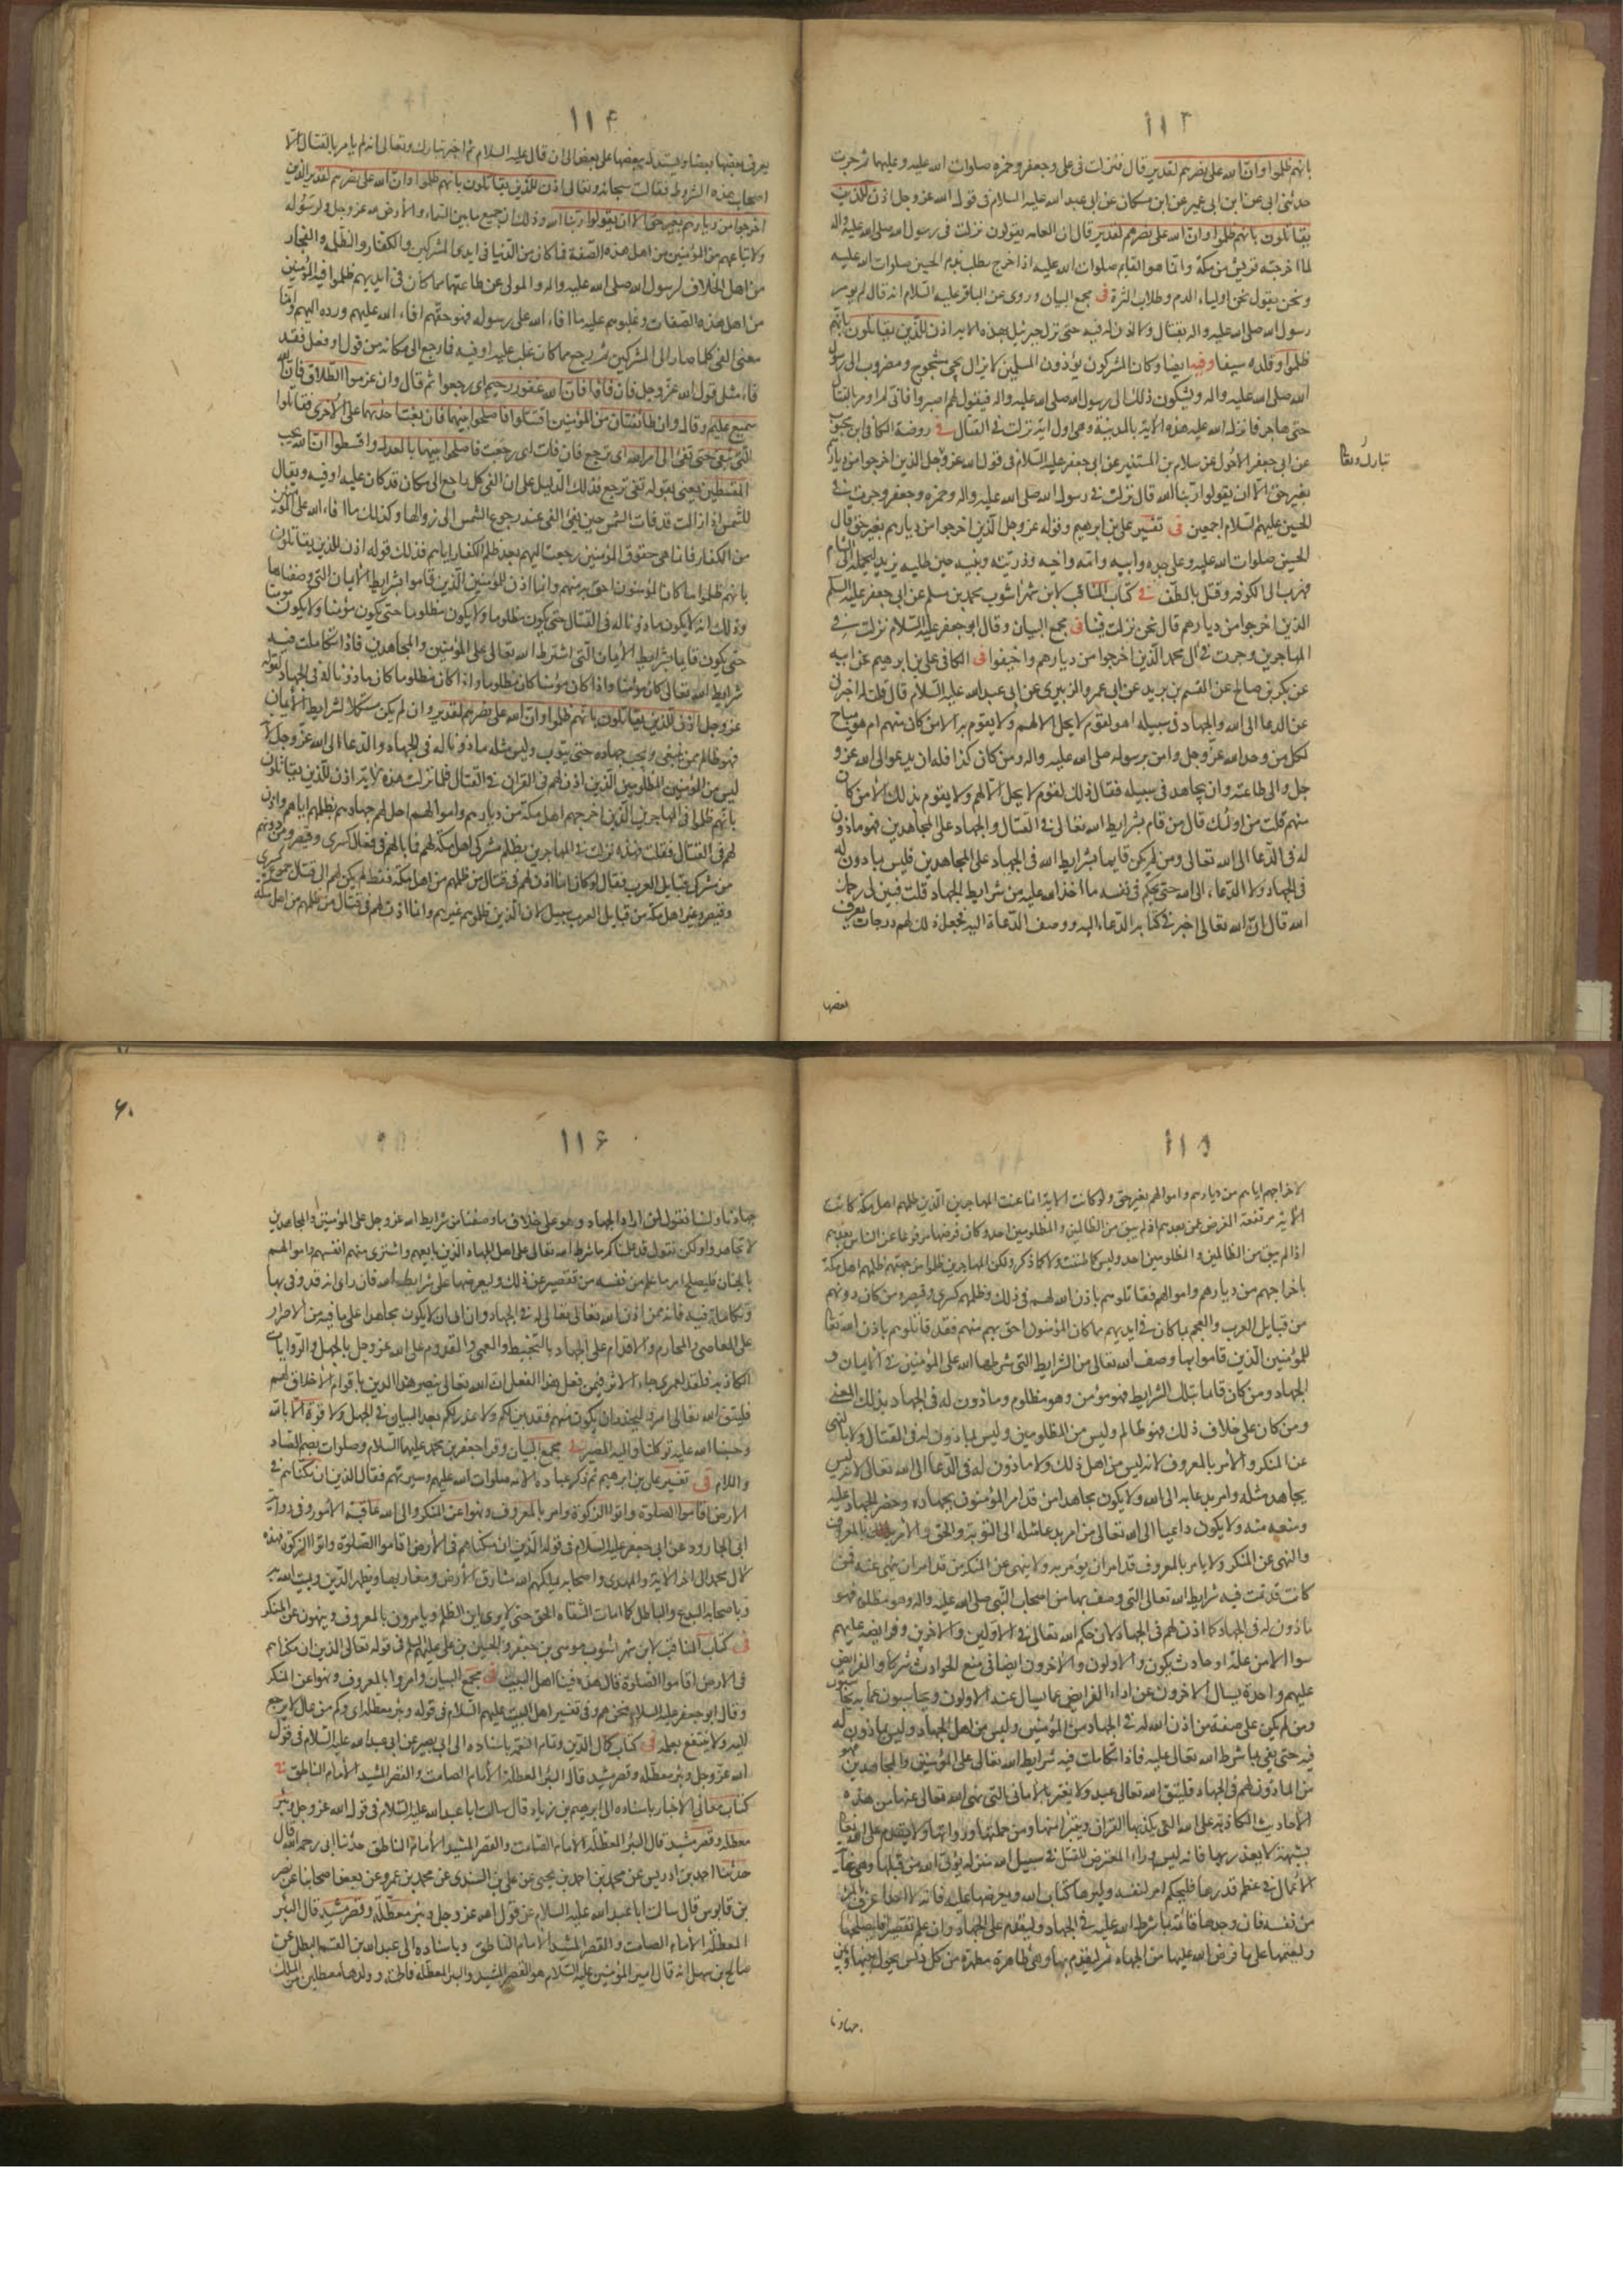 ١١٣
بانهم ظلموا وان الله على نصرهم لقدير قال فنزلت فى على وجعفر وحمزه صلوات الله عليه وعليهما ثم جرت
حدثنى ابى عن ابن ابى عمير عن ابن مسكان عن ابى عبد الله عليه السلام فى قوله الله عز وجل اذن للذين
يقاتلون بانهم ظلموا وان الله على نصرهم لقدير قال ان العامه يقولون نزلت فى رسول الله صلى الله عليه واله
لما اخرجته قريش من مكة وانما هو القايم صلوات الله عليه اذا خرج يطلب بدم الحسين صلوات الله عليه
ونحن نقول نحن اولياء الدم وطلاب الترة فى مجمع البيان وروى عن الباقر عليه السلام انه قال لم يؤمر
رسول الله صلى الله عليه واله بقتال ولا اذن له فيه حتى نزل جبرئيل بهذه الايه اذن للذين يقاتلون بانهم
ظلموا وقلده سيفا وفيه ايضا وكان المشركون يؤذون المسلمين لا يزال يجئ مشجوج ومضروب الى رسول
الله صلى الله عليه واله ويشكون ذلك الى رسول الله صلى الله عليه واله فيقول لهم اصبروا فانى لم اومر بالقتال
حتى هاجر فانزل الله عليه هذه الآية بالمدينة وهى اول اية نزلت فى القتال فى روضة الكافى ابن محبوب
عن ابى جعفر الاحول عن سلام بن المستنير عن ابى جعفر عليه السلام فى قول الله عز وجل الذين اخرجوا من ديارهم
تبارك وتعالى
بغير حق الا ان يقولوا ربنا الله قال نزلت فى رسول الله صلى الله عليه واله وحمزه وجعفر وجرت فى
الحسين عليهم السلام اجمعين فى تفسير على بن ابرهيم وقوله عز وجل الذين اخرجوا من ديارهم بغير حق قال
الحسين صلوات الله عليه وعلى جده وابيه وامه واخيه وذريته وبنيه حين طلبه يزيد ليحمله الى الشام
فهرب الى الكوفه وقتل بالطف فى كتاب المناقب لابن شهر اشوب محمد بن مسلم عن ابى جعفر عليه السلم
الذين اخرجوا من ديارهم قال نحن نزلت فينا فى مجمع البيان وقال ابو جعفر عليه السلام نزلت فى
المهاجرين وجرت فى آل محمد الذين اخرجوا من ديارهم واخيفوا فى الكافى على بن ابرهيم عن ابيه
عن بكر بن صالح عن القسم بن بريد عن ابى عمرو الزبيرى عن ابى عبد الله عليه السلام قال قلت له اخبرنى
عن الدعا الى الله والجهاد فى سبيله اهو لقوم لا يحل الا لهم ولا يقوم به الا من كان منهم ام هو مباح
لكل من وحد الله عز وجل وامن برسوله صلى الله عليه واله ومن كان كذا فله ان يدعو الى الله عز و
جل والى طاعته وان يجاهد فى سبيله فقال ذلك لقوم لا يحل الا لهم ولا يقوم بذلك الا من كان
منهم قلت من اولئك قال من قام بشرايط الله تعالى فى القتال والجهاد على المجاهدين فهو ماذون
له فى الدعا الى الله تعالى ومن لم يكن قايما بشرايط الله فى الجهاد على المجاهدين فليس بماذون له
فى الجهاد ولا الدعاء الى الله حتى يحكم فى نفسه ما اخذ الله عليه من شرايط الجهاد قلت فبين لى رحمك
الله قال ان الله تعالى اخبر فى كتابه الدعاء اليه ووصف الدعاة اليه فجعل ذلك لهم درجات يعرف
بعضها
١١٤
يعرف بعضها بعضا ويستدل ببعضها على بعض الى ان قال عليه السلام ثم اخبر تبارك وتعالى انه لم يامر بالقتال الا
اصحاب هذه الشروط فقال سبحانه وتعالى اذن للذين يقاتلون بانهم ظلموا وان الله على نصرهم لقدير الذين
اخرجوا من ديارهم بغير حق الا ان يقولوا ربنا الله وذلك ان جميع ما بين السماء والأرض لله عز وجل ولرسوله
ولاتباعهم من المؤمنين من اهل هذه الصفة فما كان من الدنيا فى ايدى المشركين والكفار والظلمه والفجار
من اهل الخلاف لرسول الله صلى الله عليه واله والمولى عن طاعتهما مما كان فى ايديهم ظلموا فيه المؤمنين
من اهل هذه الصفات وغلبوهم عليه مما افاء الله على رسوله فهو حقهم افاء الله عليهم ورده اليهم وانما
معنى الفئ كلما صار الى المشركين ثم رجع مما كان غلب عليه او فيه فما رجع الى مكانه من قول او فعل فقد
فاء مثل قول الله عز وجل فان فاؤا فان الله غفور رحيم اى رجعوا ثم قال وان عزموا الطلاق فان الله
سميع عليم وقال وان طائفتان من المؤمنين اقتتلوا فاصلحوا بينهما فان بغت احديهما على الأخرى فقاتلوا
التى تبغى حتى تفئ الى امر الله اى ترجع فان فاءت اى رجعت فاصلحوا بينهما بالعدل واقسطوا ان الله يحب
المقسطين يعنى بقوله تفئ ترجع فذلك الدليل على ان الفئ كل راجع الى مكان قد كان عليه او فيه ويقال
للشمس اذا زالت قد فاءت الشمس حين يفئ الفئ عند رجوع الشمس الى زوالها وكذلك ما افاء الله على المؤمنين
من الكفار فانما هى حقوق المؤمنين رجعت اليهم بعد ظلم الكفار اياهم فذلك قوله اذن للذين يقاتلون
بانهم ظلموا ما كان المؤمنون احق به منهم وانما اذن للمؤمنين الذين قاموا بشرايط الأيمان التى وصفناها
وذلك انه لا يكون ماذونا له فى القتال حتى يكون مظلوما ولا يكون مظلوما حتى يكون مؤمنا ولا يكون مومنا
حتى يكون قايما بشرايط الأيمان التى اشترط الله تعالى على المؤمنين والمجاهدين فاذا تكاملت فيه
شرايط الله تعالى كان مؤمنا واذا كان مؤمنا كان مظلوما واذا كان مظلوما كان ماذونا له فى الجهاد لقوله
عز وجل اذن للذين يقاتلون بانهم ظلموا وان الله على نصرهم لقدير وان لم يكن مستكملا لشرايط الأيمان
فهو ظالم ممن يبغى ويجب جهاده حتى يتوب وليس مثله ماذونا له فى الجهاد والدعا الى الله عز وجل لانه
ليس من المؤمنين المظلومين الذين اذن لهم فى القران فى القتال فلما نزلت هذه الاية اذن للذين يقاتلون
بانهم ظلموا فى المهاجرين الذين اخرجهم اهل مكة من ديارهم واموالهم احل لهم جهادهم بظلمهم اياهم واذن
لهم فى القتال فقلت فهذه نزلت فى المهاجرين بظلم مشركى اهل مكة لهم فما بالهم فى قتال كسرى وقيصر ومن دونهم
من مشركى قبايل العرب فقال لو كان انما اذن لهم فى قتال من ظلمهم من اهل مكة فقط لم يكن لهم الى قتال جموع كسرى
وقيصر وغير اهل مكة من قبايل العرب سبيل لان الذين ظلموهم غيرهم وانما اذن لهم فى قتال من ظلمهم من اهل مكة
١١٥
لاخراجهم اياهم من ديارهم واموالهم بغير حق ولو كانت الاية انما عنت المهاجرين الذين ظلمهم اهل مكة كانت
الأية مرتفعة الفرض عمن بعدهم اذ لم يبق من الظالمين والمظلومين احد وكان فرضها مرفوعا عن الناس بعدهم
اذا لم يبق من الظالمين والمظلومين احد وليس كما ظننت ولا كما ذكرت ولكن المهاجرين ظلموا من جهتين ظلمهم اهل مكة
باخراجهم من ديارهم واموالهم فقاتلوهم باذن الله لهم فى ذلك وظلمهم كسرى وقيصر ومن كان دونهم
من قبايل العرب والعجم بما كان فى ايديهم مما كان المؤمنون احق به منهم فقد قاتلوهم باذن الله تعالى
للمؤمنين الذين قاموا بما وصف الله تعالى من الشرايط التى شرطها الله على المؤمنين فى الأيمان و
الجهاد ومن كان قائما بتلك الشرايط فهو مؤمن وهو مظلوم وماذون له فى الجهاد بذلك المعنى
ومن كان على خلاف ذلك فهو ظالم وليس من المظلومين وليس بماذون له فى القتال ولا بالنهى
عن المنكر والأمر بالمعروف لانه ليس من اهل ذلك ولا ماذون له فى الدعا الى الله تعالى لانه ليس
يجاهد مثله وامر بدعائه الى الله ولا يكون مجاهدا من قد امر المؤمنون بجهاده وحظر الجهاد عليه
ومنعه منه ولا يكون داعيا الى الله تعالى من امر بدعا مثله الى التوبة والحق والأمر بالمعروف
والنهى عن المنكر ولا يامر بالمعروف من قد امر ان يؤمر به ولا ينهى عن المنكر من قد امر ان ينهى عنه فمن
كانت قد تمت فيه شرايط الله تعالى التى وصف بها من اصحاب النبى صلى الله عليه واله وهو مظلوم فهو
ماذون له فى الجهاد كما اذن لهم فى الجهاد لان حكم الله تعالى فى الاولين والاخرين وفرايضه عليهم
سوا الا من علة او حادث يكون والاولون والأخرون ايضا فى منع الحوادث شركا والفرايض
عليهم واحدة يسال الأخرون عن اداء الفرايض عما يسال عنه الاولون ويحاسبون عما به يحاسبون
ومن لم يكن على صفة من اذن الله له فى الجهاد من المؤمنين وليس من اهل الجهاد وليس بماذون له
فيه حتى يفئ بما شرط الله تعالى عليه فاذا تكاملت فيه شرايط الله تعالى على المؤمنين والمجاهدين فهو
من الماذونين لهم فى الجهاد فليتق الله تعالى عبد ولا يغتر بالأمانى التى نهى الله تعالى عنها من هذه
الأحاديث الكاذبة على الله التى يكذبها القران ويتبرأ منها ومن حملتها ورواتها ولا يقدم على الله تعالى
بشبهة لا يعذر بها فانه ليس وراء المتعرض للقتل فى سبيل الله منزله يؤتى الله من قبلها وهى غاية
الأعمال فى عظم قدرها فليحكم امر لنفسه وليرها كتاب الله ويعرضها عليه فانه لا احد اعرف بالمرء
من نفسه فان وجدها قائمة بما شرط الله عليه فى الجهاد فليقدم على الجهاد وان علم تقصيرا فليصلحها
وليقمها على ما فرض الله عليها من الجهاد ثم ليقدم بها وهى طاهرة مطهرة من كل دنس يحول بينها وبين
جهادها
١١٦
٦٠
جهادها ولسنا نقول لمن اراد الجهاد وهو على خلاف ما وصفنا من شرايط الله عز وجل على المؤمنين والمجاهدين
لا تجاهدوا ولكن نقول قد علمناكم ما شرط الله تعالى على اهل الجهاد الذين بايعهم واشترى منهم انفسهم واموالهم
بالجنان فليصلح امرء ما علم من نفسه من تقصير عن ذلك وليعرضها على شرايط الله فان راى انه قد وفى بها
وتكاملت فيه فانه ممن اذن الله تعالى له فى الجهاد وان ابى ان لا يكون مجاهدا على ما فيه من الاصرار
على المعاصى والمحارم والاقدام على الجهاد بالتخبيط والعمى والقدوم على الله عز وجل بالجهل والروايات
الكاذبة فلقد لعمرى جاء الاثر فيمن فعل هذا الفعل ان الله تعالى ينصر هذا الدين باقوام لا خلاق لهم
فليتق الله تعالى امرؤ وليحذر ان يكون منهم فقد بين لكم ولا عذر لكم بعد البيان فى الجهل ولا قوة الا بالله
وحسبنا الله عليه توكلنا واليه المصير فى مجمع البيان وقرا جعفر بن محمد عليهما السلام وصلوات بضم الصاد
واللام فى تفسير على بن ابرهيم ثم ذكر عبادة الائمه صلوات الله عليهم وسيرتهم فقال الذين ان مكناهم فى
الأرض اقاموا الصلوة واتوا الزكوة وامروا بالمعروف ونهوا عن المنكر والى الله عاقبة الأمور وفى رواية
ابى الجارود عن ابى جعفر عليه السلام فى قوله الذين ان مكناهم فى الأرض اقاموا الصلوة واتوا الزكوة فهذه
لآل محمد الى اخر الاية والمهدى واصحابه يملكهم الله مشارق الأرض ومغاربها ويظهر الدين ويميت الله به
وباصحابه البدع والباطل كما امات السفهاء الحق حتى لا يرى اين الظلم ويامرون بالمعروف وينهون عن المنكر
فى كتاب المناقب لابن شهر اشوب موسى بن جعفر والحسين بن على عليهم السلم فى قوله تعالى الذين ان مكناهم
فى الارض اقاموا الصلوة قال هذه فينا اهل البيت فى مجمع البيان وامروا بالمعروف ونهوا عن المنكر
وقال ابو جعفر عليه السلام نحن هم وفى تفسير اهل البيت عليهم السلام فى قوله وبئر معطله اى وكم من عالم لا يرجع
اليه ولا ينتفع بعلمه فى كتاب كمال الدين وتمام النعمه باسناده الى ابى بصير عن ابى عبد الله عليه السلام فى قول
الله عز وجل وبئر معطله وقصر مشيد قال البئر المعطلة الأمام الصامت والقصر المشيد الأمام الناطق فى
كتاب معانى الأخبار باسناده الى ابرهيم بن زياد قال سالت ابا عبد الله عليه السلام فى قوله الله عز وجل وبئر
معطله وقصر مشيد قال البئر المعطلة الأمام الصامت والقصر المشيد الأمام الناطق حدثنا ابى رحمه الله قال
حدثنا احمد بن ادريس عن محمد بن احمد بن يحيى عن على بن السندى عن محمد بن عمرو عن بعض اصحابنا عن نصر
بن قابوس قال سالت ابا عبد الله عليه السلام عن قول الله عز وجل وبئر معطله وقصر مشيد قال البئر
المعطلة الأمام الصامت والقصر المشيد الأمام الناطق وباسناده الى عبد الله بن القسم البطل عن
صالح بن سهل انه قال امير المؤمنين عليه السلام هو القصر المشيد والبئر المعطله فاطمه وولدها معطلين من الملك